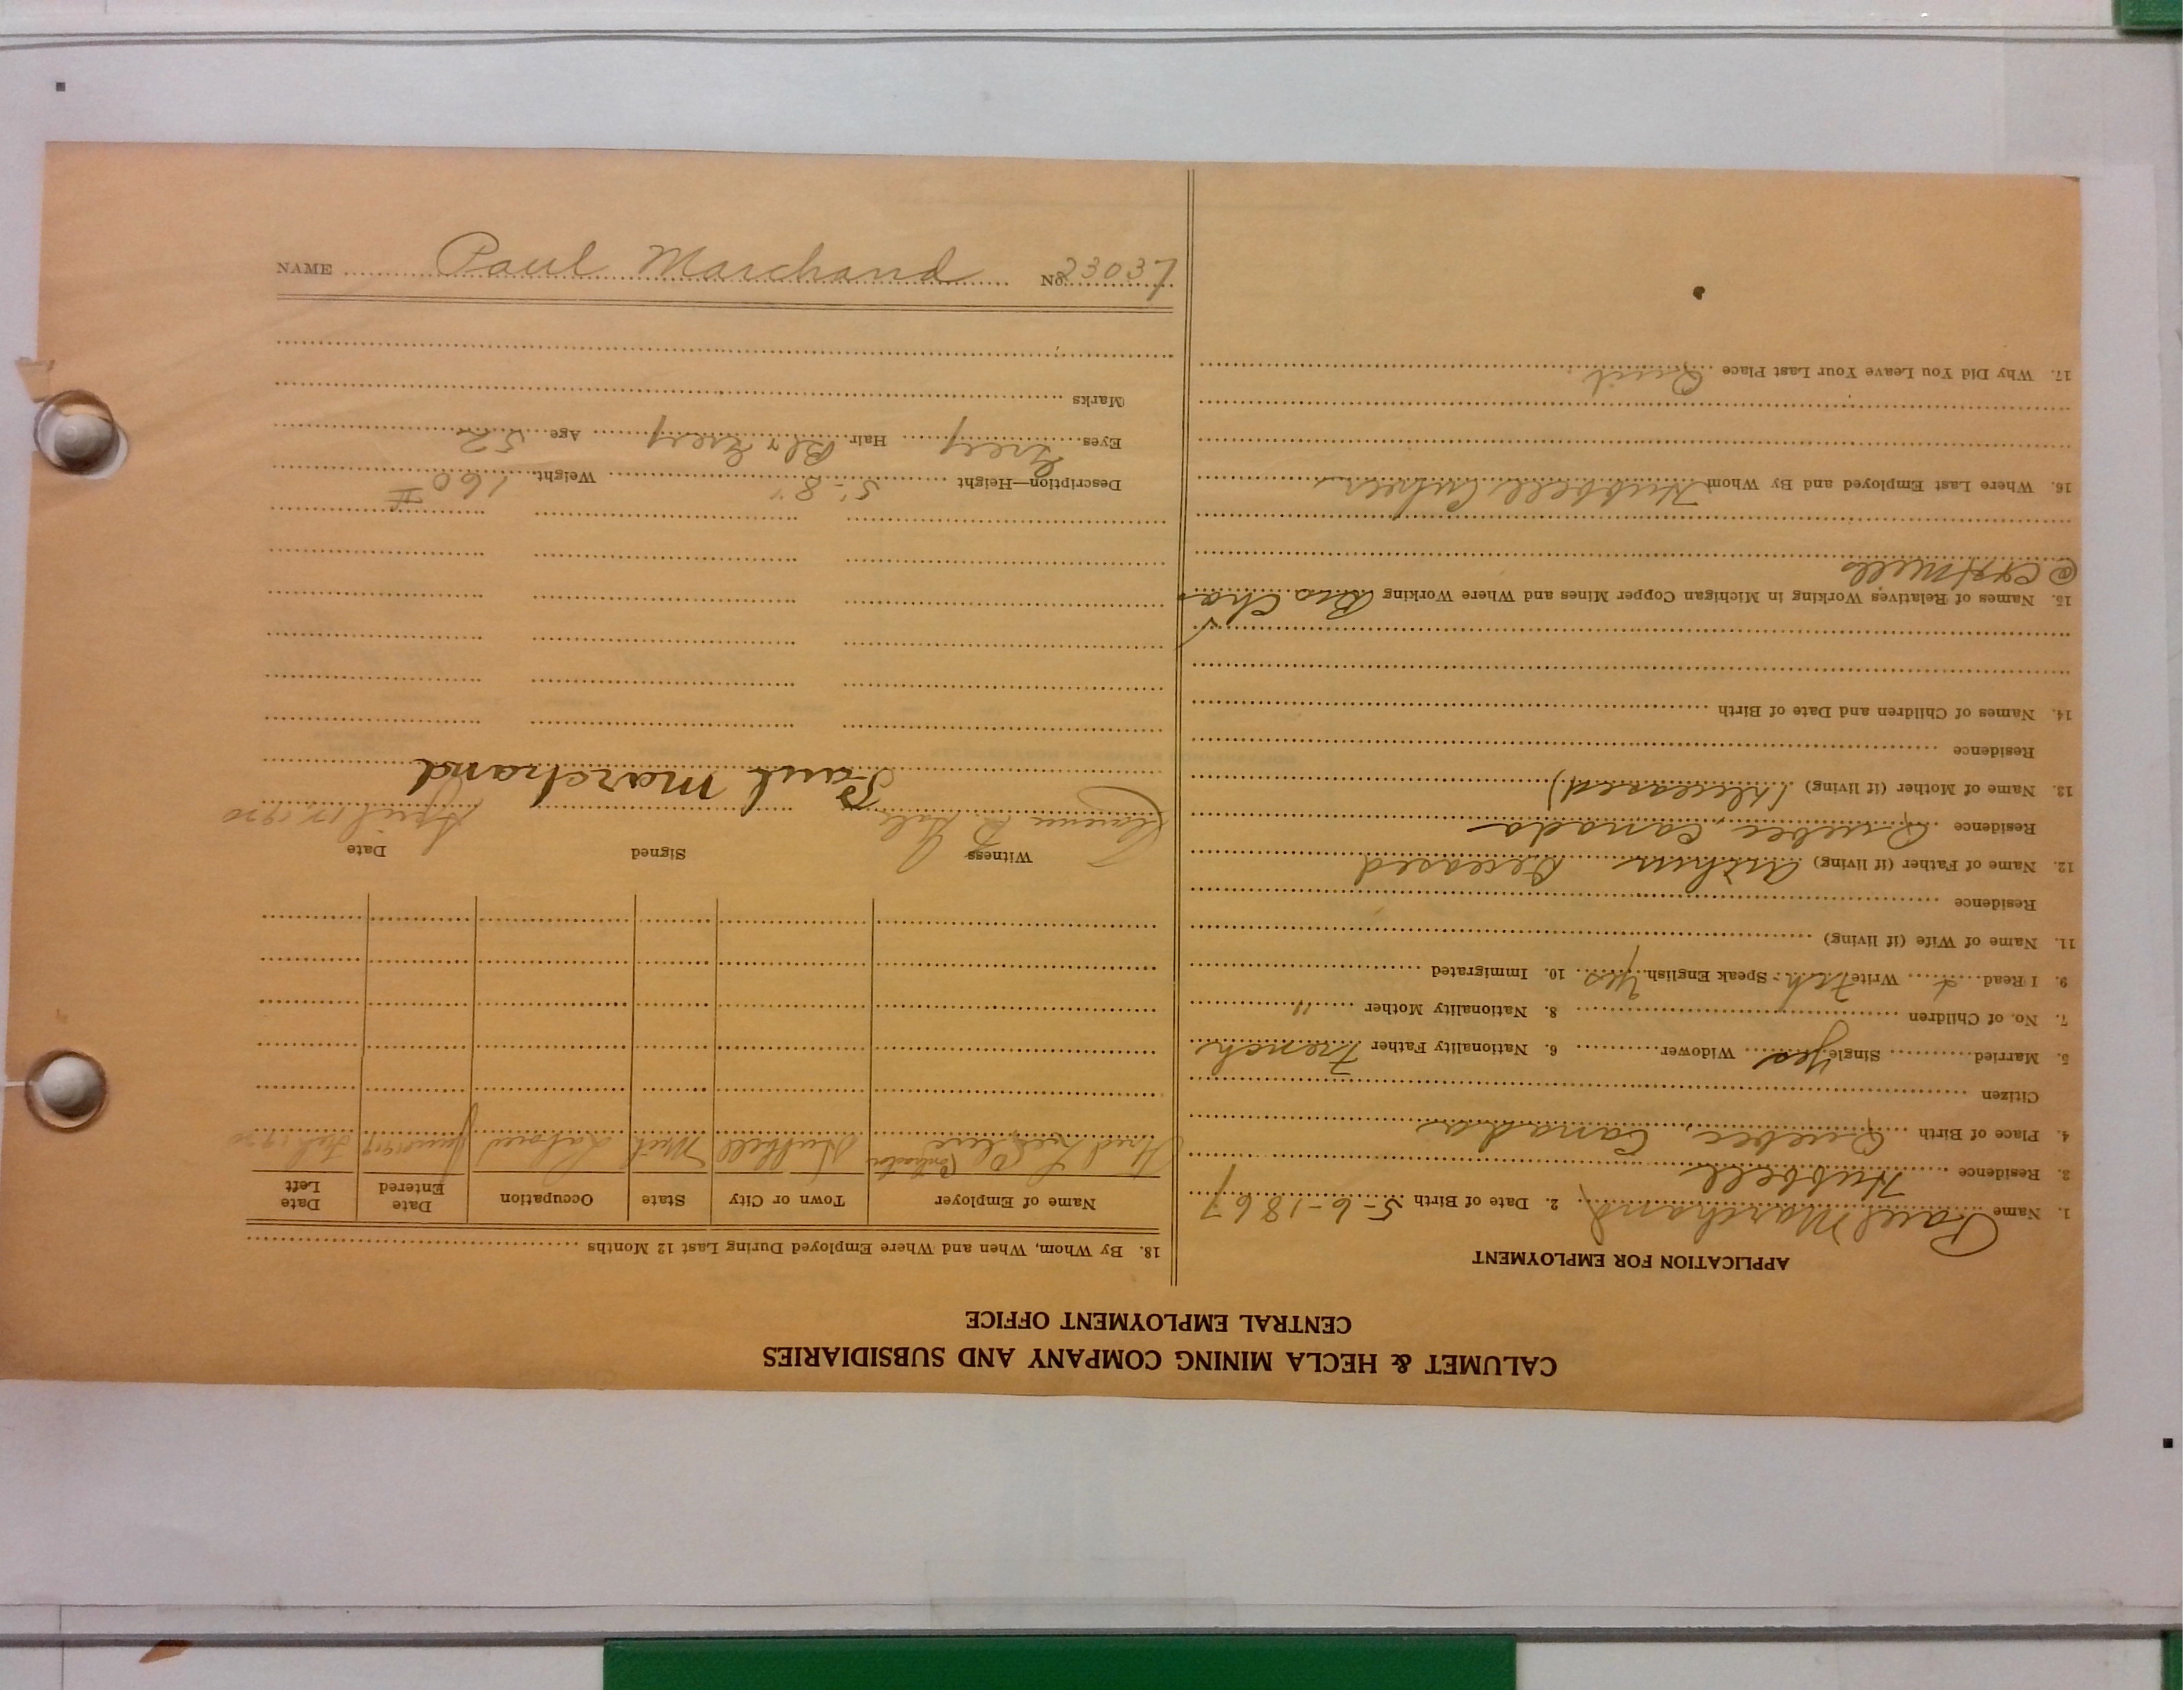 CALUMET & HECLA MINING COMPANY AND SUBSIDIARIES
CENTRAL EMPLOYMENT OFFICE
APPLICATION FOR EMPLOYMENT
1. Name Paul Marchand 2. Date of Birth 5-6-1867
3. Residence Hubbell
4. Place of Birth Quebec, Canada
Citizen
5. Married Single yes Widower 6. Nationality Father French
7. No. of Children 8. Nationality Mother "
9. I Read Write Speak English yes 10. Immigrated
11. Name of Wife (if living)
Residence
12. Name of Father (if living) Arthur Deceased
Residence Quebec, Canada
13. Name of Mother (if living) (Deceased)
Residence
14. Names of Children and Date of Birth
15. Names of Relatives Working in Michigan Copper Mines and Where Working Bro Chas
@ C&H Mills
16. Where Last Employed and By Whom Hubbell
17. Why Did You Leave Your Last Place Quit
18. By Whom, When and Where Employed During Last 12 Months
Name of Employer Town or City State Occupation Date Entered Date Left
Contractor Hubbell Mich Laborer June 1919 Feb 1920
Witness Signed Date
Clarence Paul Marchand April 1920
Description—Height 5'-8" Weight 160 #
Eyes Grey Hair Bl & Grey Age 52
Marks
NAME Paul Marchand No. 23037